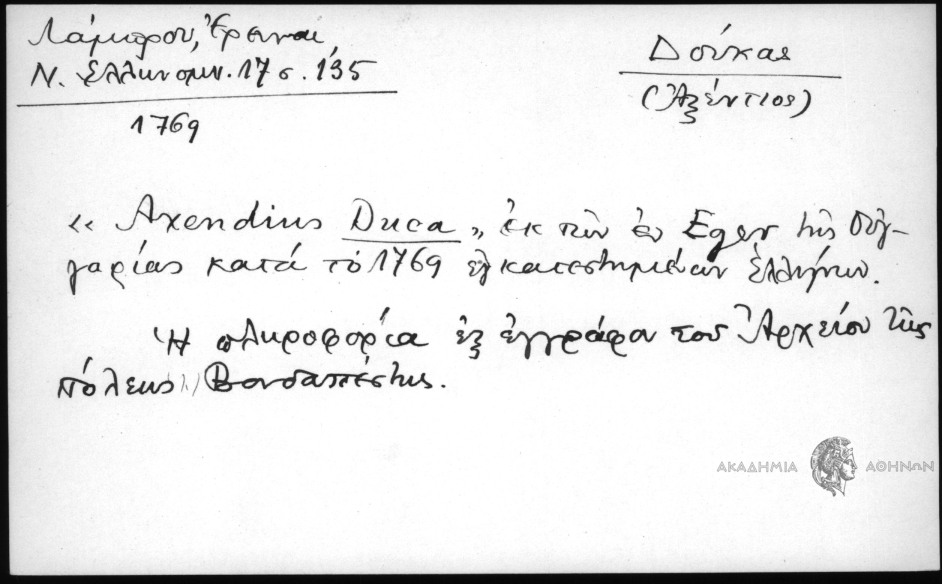 Λάμπρου, Ἔρευναι
Ν. Ἑλληνομν. 17 σ. 135
1769
Δούκας
(Ἀξέντιος)
« Axendius Duca » ἐκ τῶν ἐν Eger τῆς Οὑγ-
γαρίας κατά τό 1769 ἐγκατεστημένων Ἑλλήνων.
Ἡ πληροφορία ἐξ ἐγγράφου τοῦ Ἀρχείου τῆς
πόλεως Βουδαπέστης.
ΑΚΑΔΗΜΙΑ ΑΘΗΝΩΝ